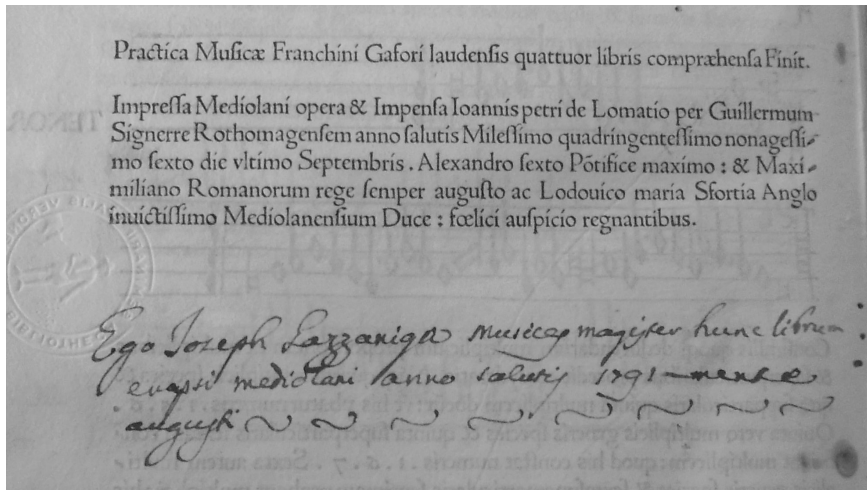 Practica Musicæ Franchini Gafori laudensis quattuor libris compræhensa Finit.
Impressa Mediolani opera & Impensa Ioannis petri de Lomatio per Guillermum
Signerre Rothomagensem anno salutis Milessimo quadringentessimo nonagessi-
mo sexto die vltimo Septembris. Alexandro sexto Põtifice maximo: & Maxi-
miliano Romanorum rege semper augusto ac Lodouico maria Sfortia Anglo
inuictissimo Mediolanensium Duce: fœlici auspicio regnantibus.
TENOR
Ego Joseph Lazzaniga musices magister hunc librum
evassi mediolani anno salutis 1791 mense
augusti